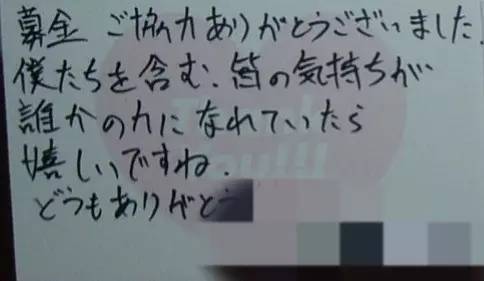 募金 ご協力ありがとうございました.
僕たちを含む、皆の気持ちが
誰かの力になれていたら
嬉しいですね.
どうもありがとう